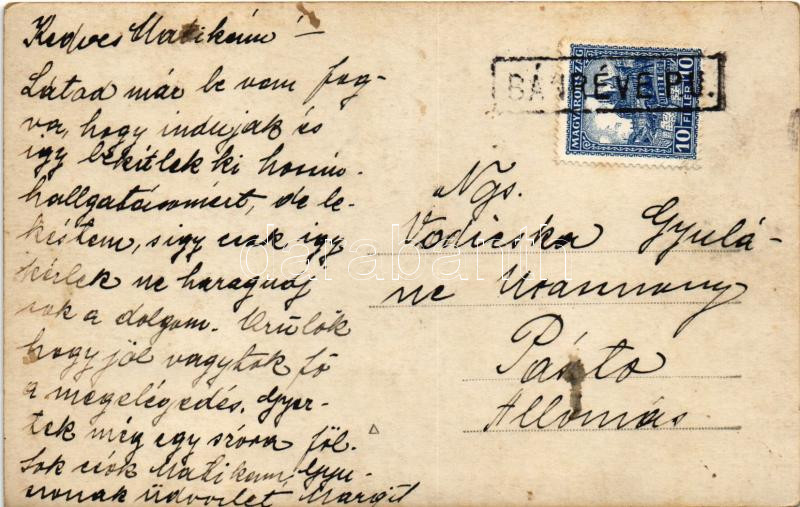 Kedves Matikám! –
Látod már be vem fog-
va, hogy indujak és
igy békitlek ki hosszu
hallgatásomért, de le-
késtem, s igy csak igy
kérlek ne haragudj
sok a dolgom. Örülök
hogy jól vagytok fő
a megelégedés. Gyer-
tek még egy szóra föl.
Sok csók Matikám, Gyu-
sonak üdvözlet Margit
BÁNRÉVE P.U.
MAGYARORSZÁG
10 FILLÉR 10
Ngs.
Vodicska Gyulá-
ne Urasszony
Pásztó
Állomás
darabanth